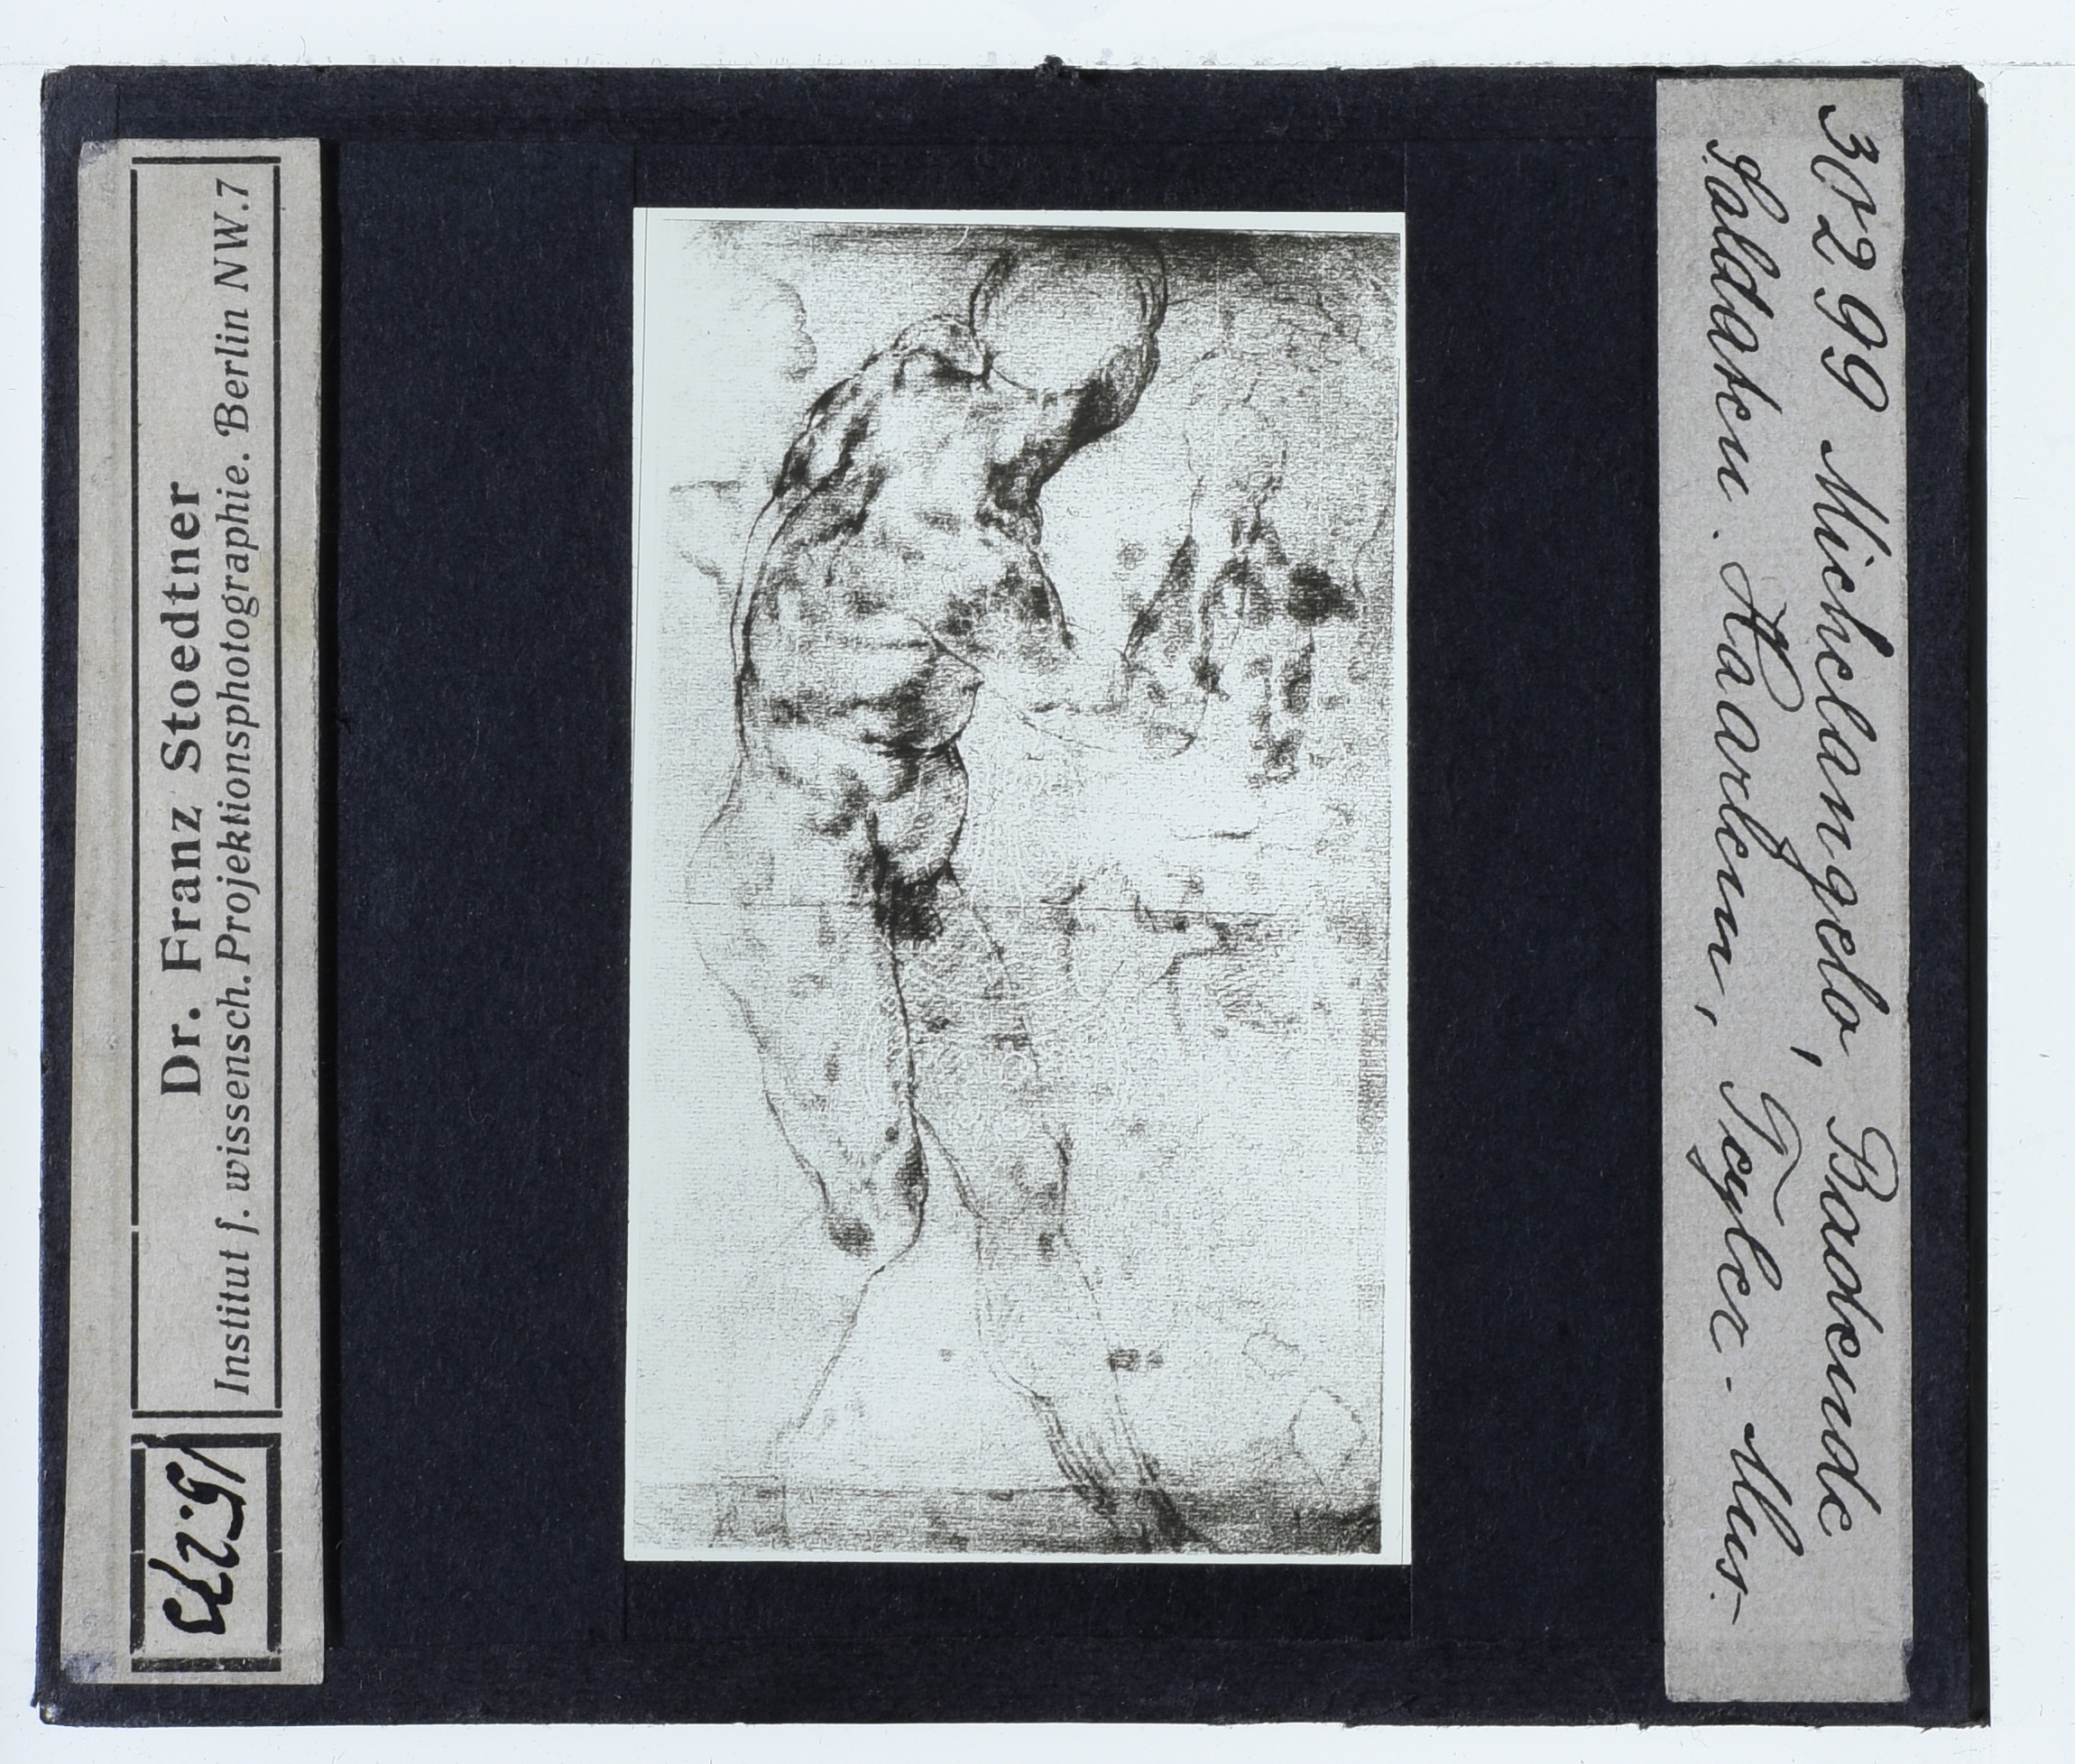 Dr. Franz Stoedtner
Institut f. wissensch. Projektionsphotographie. Berlin NW.7
30299 Michelangelo, Badende
Soldaten. Haarlem, Teyler-Mus.